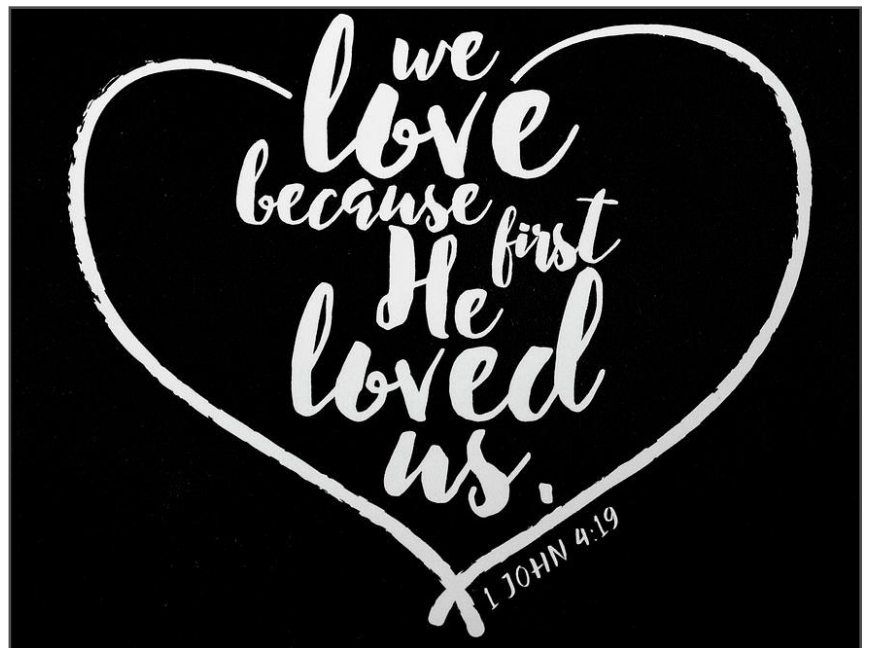 we
love
because
He first
loved
us.
1 JOHN 4:19